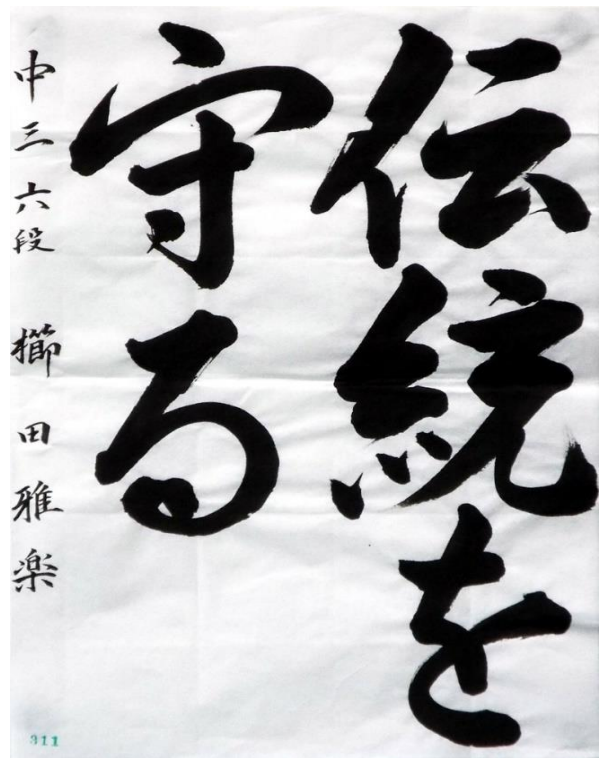 伝統を
守る
中三 六段 櫛田雅楽
311